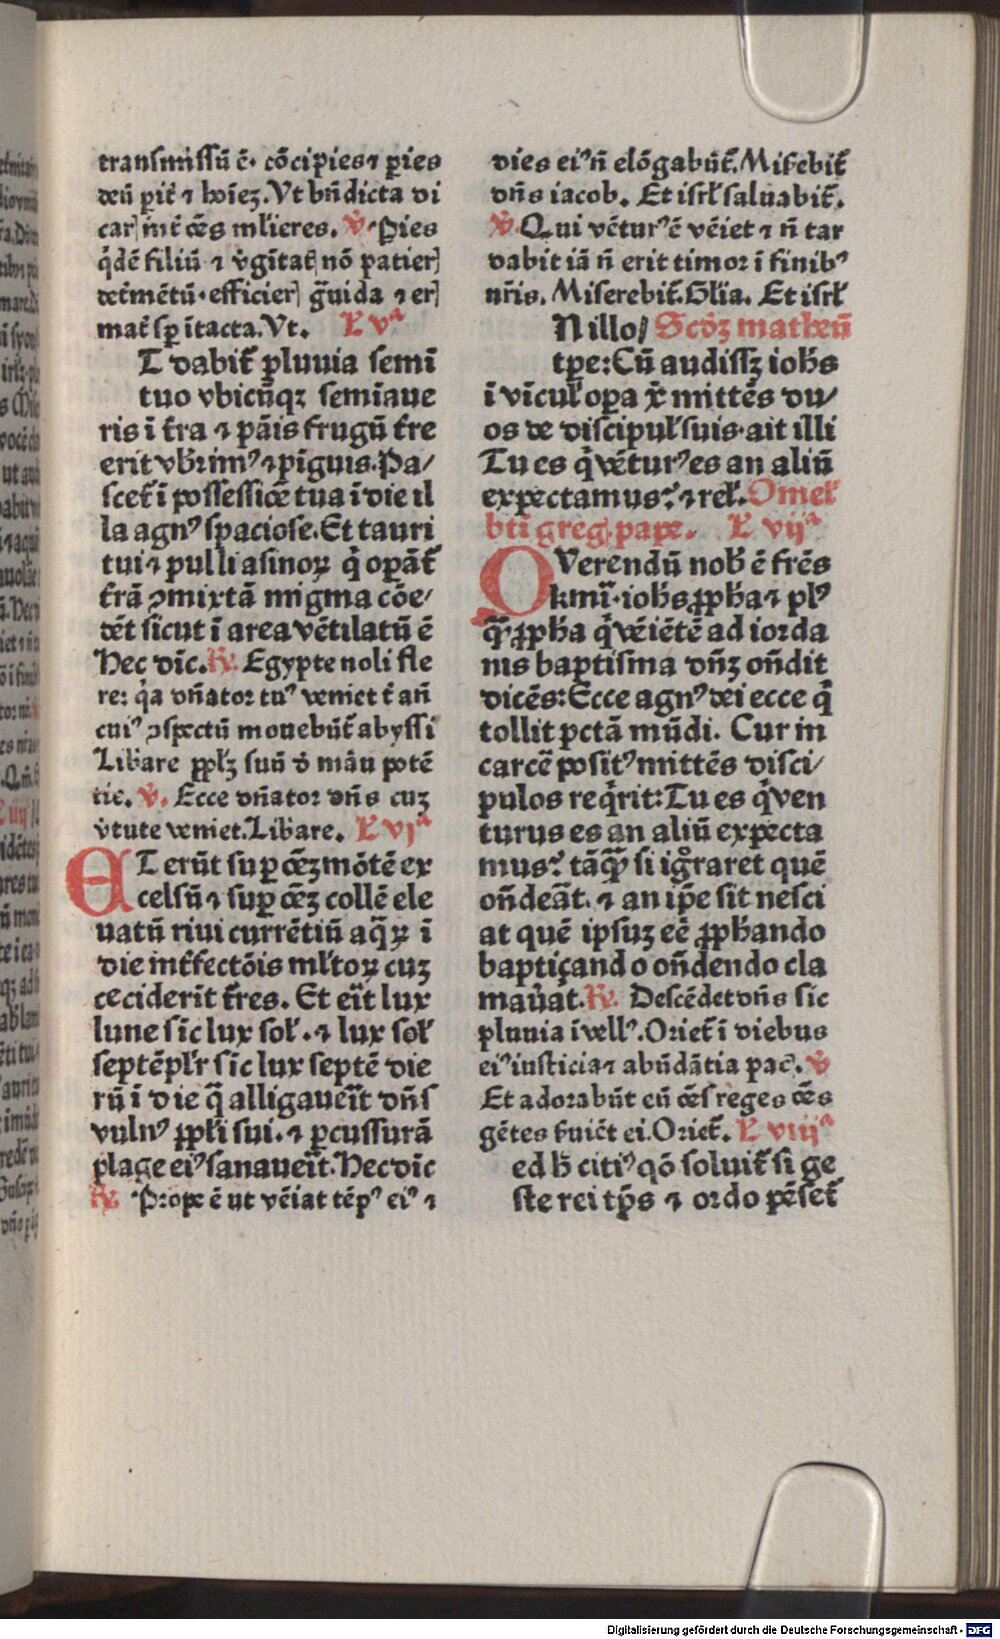 transmissū ē. cōcipies ⁊ ꝑies
deū ꝑit᷑ ⁊ hoīeꝫ. Vt bn̄dicta di
caꝝ in̄t᷑ oēs ml̓ieres. ℣. Paries
q̇dē filiū ⁊ v̇gītatꝭ nō patierꝭ
det᷑mētū. efficierꝭ g̈uida ⁊ erꝭ
mat᷑ sꝑ ītacta. Vt. L̓ vᵃ
T dabit᷑ pluuia semī
tuo vbicūqꝫ semīaue
ris ī t᷑ra ⁊ pāis frugū t᷑re
erit vb̓rimꝰ ⁊ pīguis. Pa/
scet᷑ ī possessiōe tua ī die il
la agnꝰ spaciose. Et tauri
tui ⁊ pulli asinoꝝ q̇ opāt᷑
t᷑rā ꝯmixtā migma cōe/
dēt sicut ī area vētilatū ē
Hec dic̄. ℟. Egypte noli fle
re: q̇a dn̄ator tuꝰ veniet t᷑ an̄
cuiꝰ ꝯspectū mouebūt᷑ abyssi
Lib̓are ppl̓ꝫ suū d̓ māu potē
tie. ℣. Ecce dn̄ator dn̄s cuꝫ
v̓tute veniet. Lib̓are. L̓ vjᵃ
ET erūt suꝑ oēꝫ mōtē ex
celsū ⁊ suꝑ oēꝫ collē ele
uatū riui currētiū aq̈ꝝ ī
die int᷑fectōis ml̓toꝝ cuꝫ
ceciderīt t᷑res. Et eīt lux
lune sic lux sol̓. ⁊ lux sol̓
septēpl̓r sic lux septē die
rū ī die q̄ alligaueīt dn̄s
vulnꝰ ppl̓i sui. ⁊ ꝑcussurā
plage eiꝰ sanaueīt. Hec dic̄
℟. Prope ē ut vēiat tēpꝰ eiꝰ ⁊
dies eiꝰ n̄ elōgabūt᷑. Mis̓ebit᷑
dn̄s iacob. Et isrl̓ saluabit᷑.
℣. Qui vēturꝰ ē vēiet ⁊ n̄ tar
dabit iā n̄ erit timor ī finibꝰ
nr̄is. Miserebit᷑. Gl̓ia. Et isrl̓
N illo/ Scd̓ꝫ matheū
tpe: Cū audissꝫ ioh̓s
ī vīcul̓ opa xp̄i mittēs du/
os de discipul̓ suis. ait illi
Tu es q̇ vēturꝰ es an aliū
expectamus? ⁊ rel̓. Omel̓
bt̄i gregꝭ pape. L̓ vijᵃ
QVerendū nob̓ ē fr̄es
kmī. ioh̓s ꝓph̓a ⁊ plꝰ
q̄ꝫ ꝓph̓a q̇ vēiētē ad iorda
nis baptisma dn̄ꝫ on̄dit
dicēs: Ecce agnꝰ dei ecce q̇
tollit pctā mūdi. Cur in
carcē positꝰ mittēs disci/
pulos req̇rit: Tu es q̇ ven
turus es an aliū expecta
mus? tāq̄ꝫ si igr̄aret quē
on̄deāt. ⁊ an ip̄e sit nesci
at quē ipsuꝫ eē ꝓph̓ando
baptiçando on̄dendo cla
mau̓at. ℟. Descēdet dn̄s sic
pluuia ī vellꝰ. Oriet᷑ ī diebus
eiꝰ iusticia ⁊ abūdātia pac̄. ℣
Et adorabūt eū oēs reges oēs
gētes s̓uiēt ei. Oriet᷑. L̓ viijᵃ
ed h̓ citiꝰ qō soluit᷑ si ge
ste rei tp̄s ⁊ ordo pēset᷑
Digitalisierung gefördert durch die Deutsche Forschungsgemeinschaft - DFG